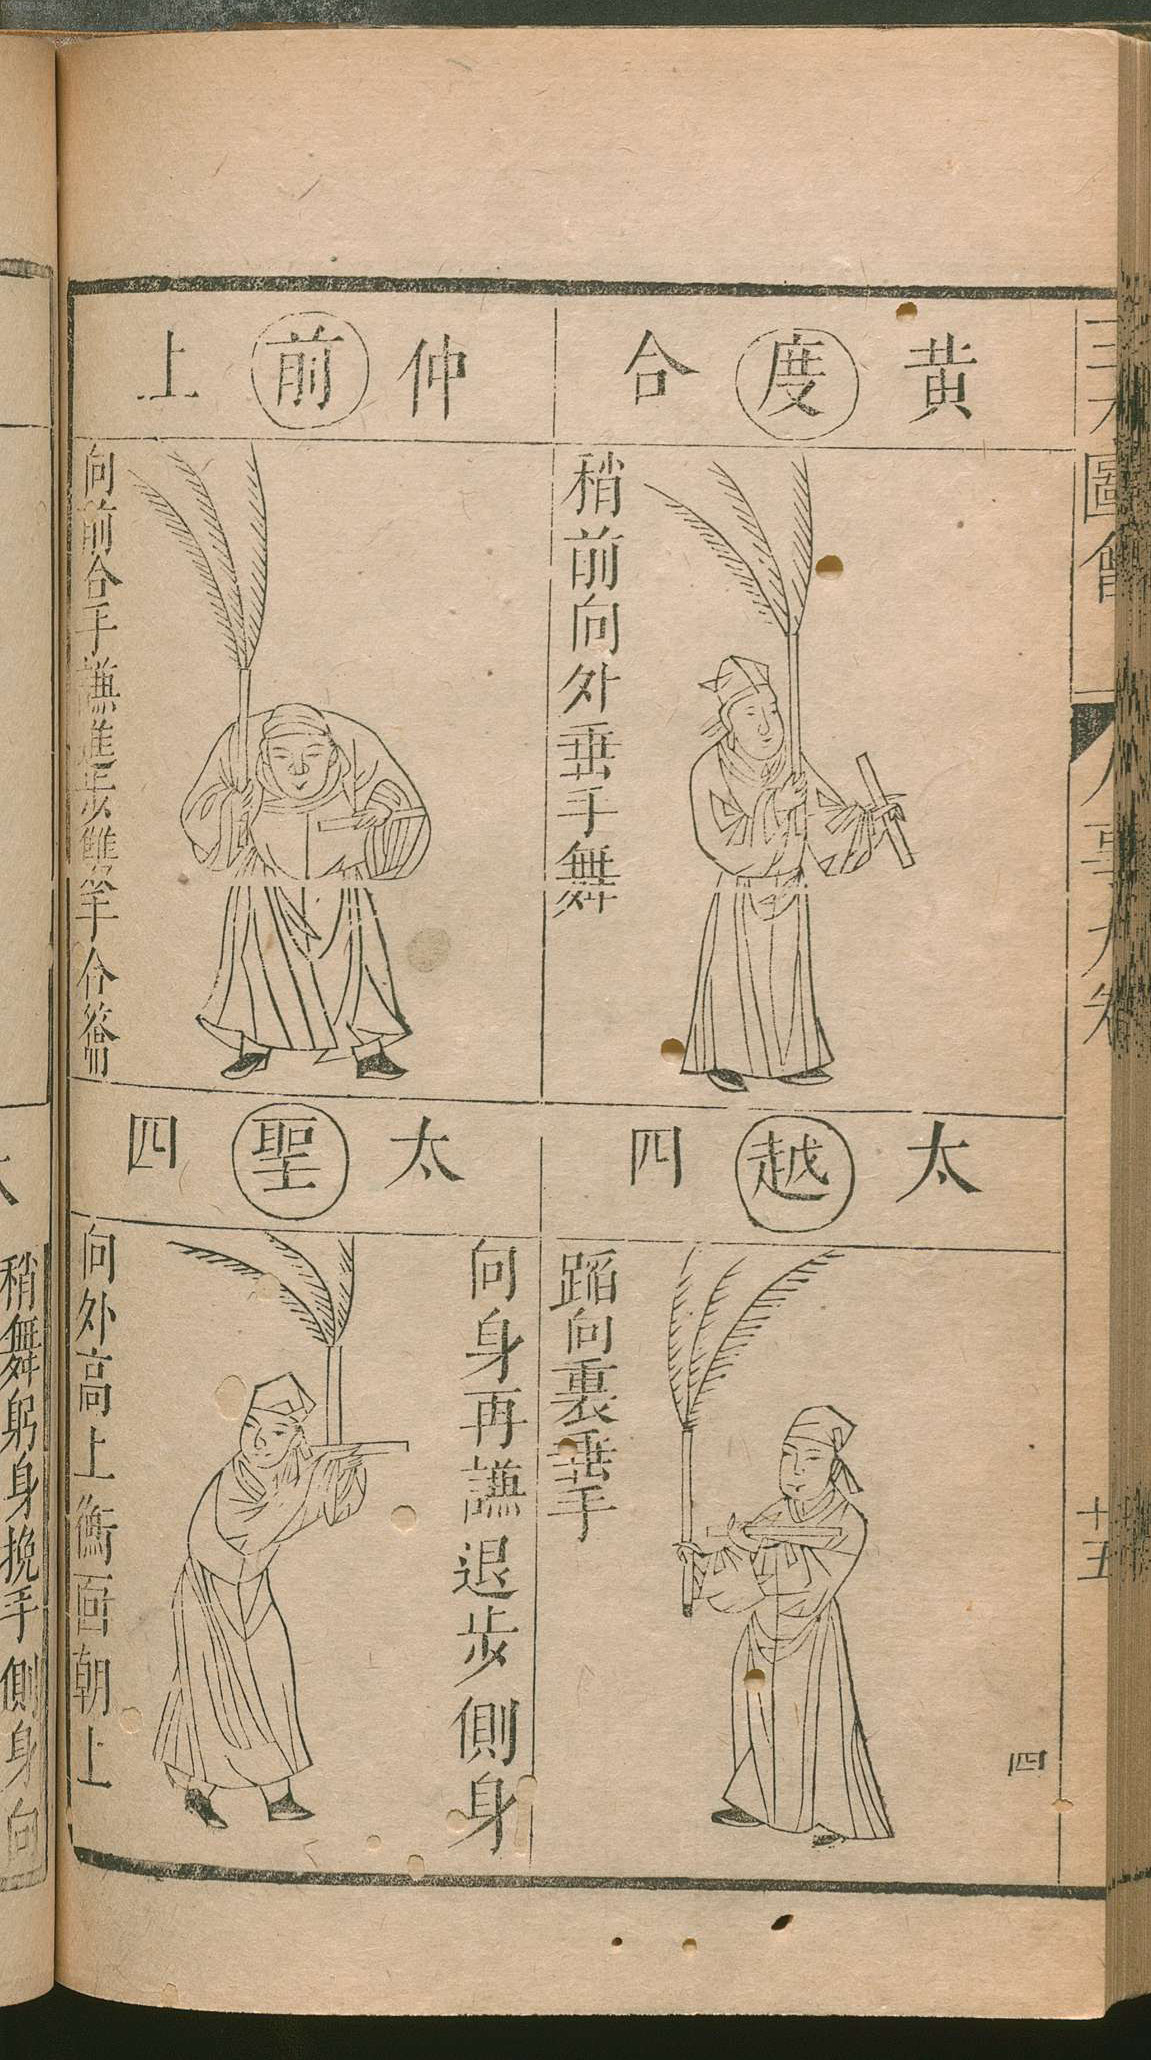 三才圖會
人事九卷
十五
四
黃 度 合
稍前向外垂手舞
仲 前 上
向前合手謙進步雙手合籥
太 越 四
蹈向裏垂手
太 聖 四
向身再謙退步側身
向外高上衡面朝上
稍舞躬身挽手側身向